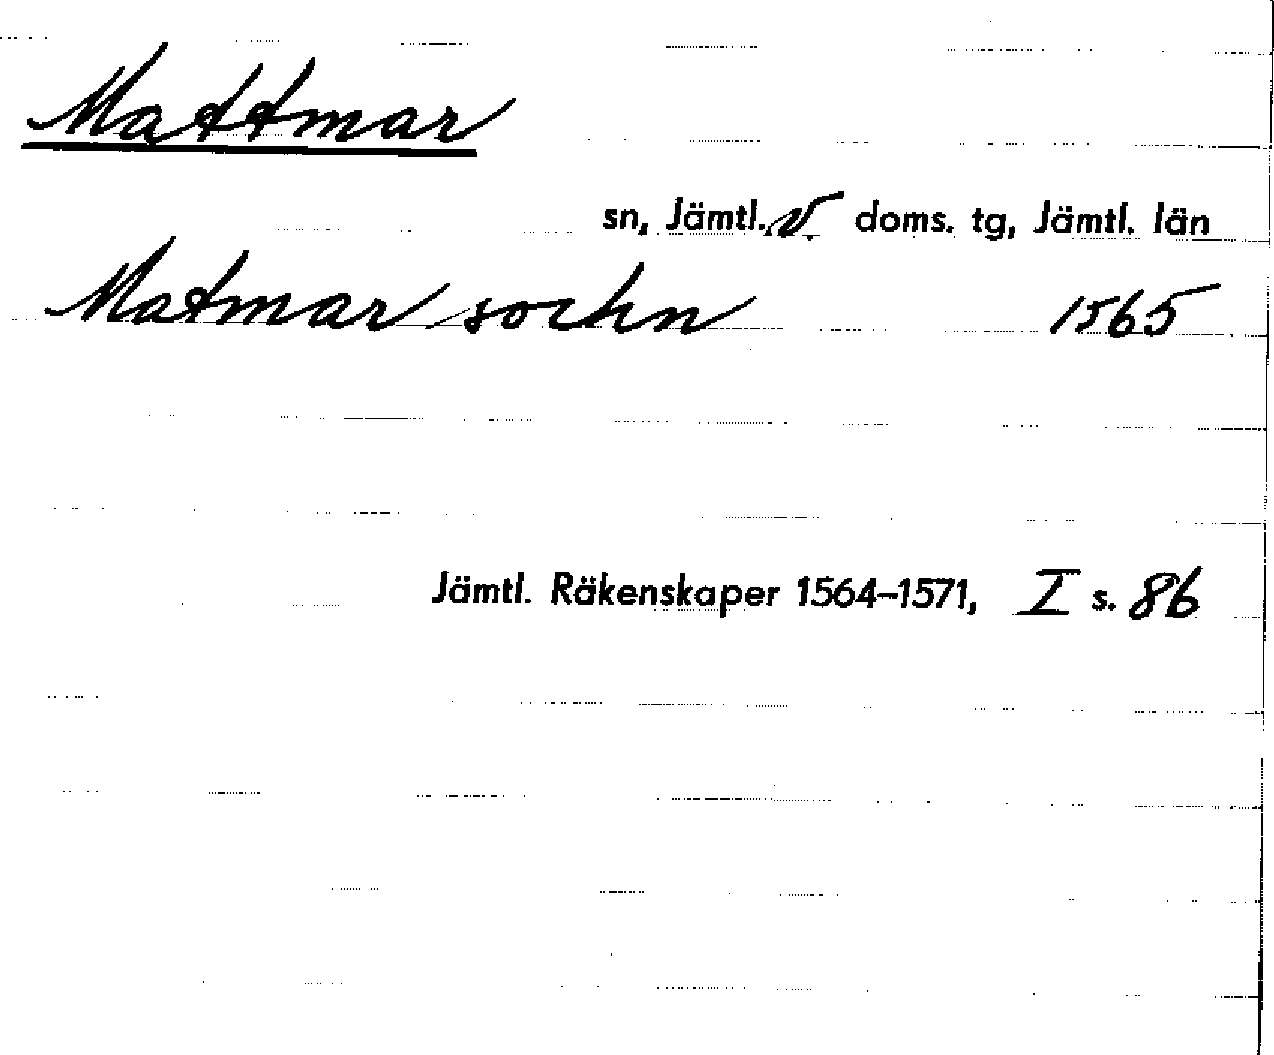 Mattmar
sn, Jämtl. v. doms. tg, Jämtl. län
Matmar sochn 1565
Jämtl. Räkenskaper 1564–1571, I s. 86